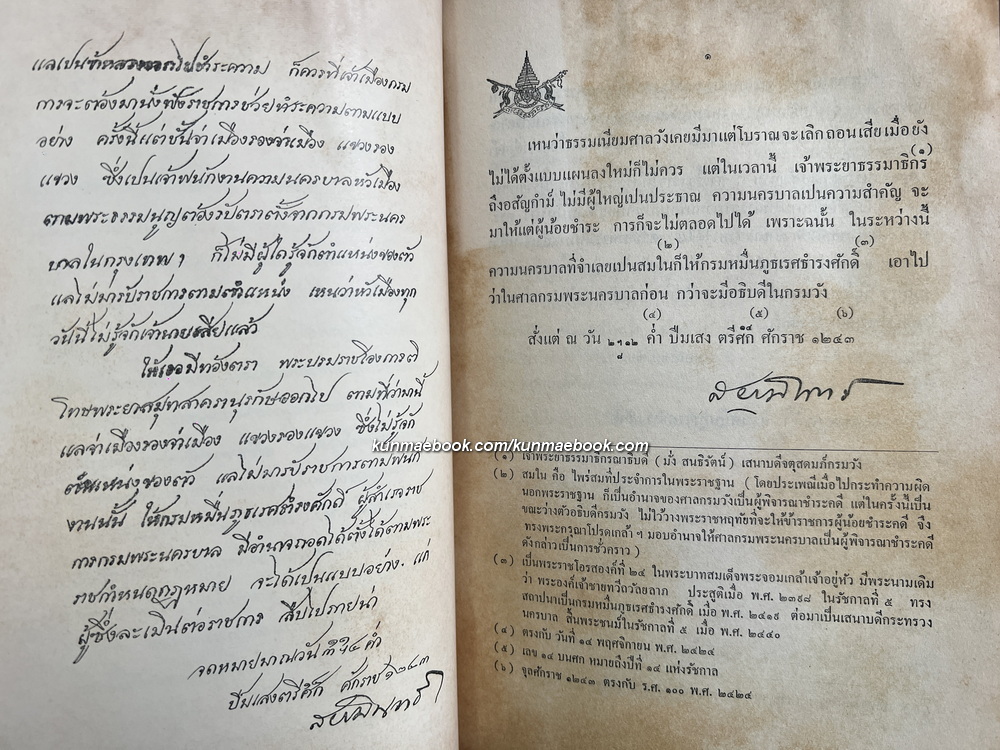 แลเปนข้าหลวงออกไปชำระความ ก็ควรที่เจ้าเมืองกรม
การจะต้องมานั่งฟังราชการช่วยชำระความตามแบบ
อย่าง ครั้งนี้แต่ชั้นจ่าเมืองรองจ่าเมือง แขวงรอง
แขวง ซึ่งเปนเจ้าพนักงานความนครบาลหัวเมือง
ตามพระธรรมนูญต้องรับตราตั้งจากกรมพระนคร
บาลในกรุงเทพฯ ก็ไม่มีผู้ใดรู้จักตำแหน่งของตัว
แลไม่มารับราชการตามตำแหน่ง เหนว่าหัวเมืองทุก
วันนี้ไม่รู้จักเจ้านายเสียแล้ว
ให้ มีท้องตรา พระบรมราชโองการติ
โทษพระยาสมุทสาครานุรักษ์ออกไป ตามที่ว่ามานี้
แลจ่าเมืองรองจ่าเมือง แขวงรองแขวง ซึ่งไม่รู้จัก
ตำแหน่งของตัว แลไม่มารับราชการตามพนัก
งานนั้น ให้กรมหมื่นภูธเรศธำรงศักดิ์ ผู้สำเรจราช
การกรมพระนครบาล มีอำนาจถอดได้ตั้งได้ตามพระ
ราชกำหนดกฎหมาย จะได้เปนแบบอย่าง แก่
ผู้ซึ่งละเมินต่อราชการ สืบไปภายน่า
จดหมายมาณวัน ค่ำ
ปีมเสงตรีศก ศักราช ๑๒๔๓
สยามินทร์
๑
เหนว่าธรรมเนียมศาลวังเคยมีมาแต่โบราณจะเลิกถอนเสียเมื่อยัง
(๑)
ไม่ได้ตั้งแบบแผนลงใหม่ก็ไม่ควร แต่ในเวลานี้ เจ้าพระยาธรรมาธิกร
ถึงอสัญกำม์ ไม่มีผู้ใหญ่เปนประธาณ ความนครบาลเปนความสำคัญ จะ
มาให้แต่ผู้น้อยชำระ การก็จะไม่ตลอดไปได้ เพราะฉนั้น ในระหว่างนี้
(๒) (๓)
ความนครบาลที่จำเลยเปนสมในก็ให้กรมหมื่นภูธเรศธำรงศักดิ์ เอาไป
ว่าในศาลกรมพระนครบาลก่อน กว่าจะมีอธิบดีในกรมวัง
(๔) (๕) (๖)
สั่งแต่ ณ วัน ค่ำ ปีมเสง ตรีศก ๑๔ ศักราช ๑๒๔๓
สยามินทร์
kunmaebook.com/kunmaebook.com
(๑) เจ้าพระยาธรรมาธิกรณาธิบดี (มั่ง สนธิรัตน์) เสนาบดีจตุสดมภ์กรมวัง
(๒) สมใน คือ ไพร่สมที่ประจำการในพระราชฐาน (โดยประเพณีเมื่อไปกระทำความผิด
นอกพระราชฐาน ก็เป็นอำนาจของศาลกรมวังเป็นผู้พิจารณาชำระคดี แต่ในครั้งนี้เป็น
ขณะว่างตัวอธิบดีกรมวัง ไม่ไว้วางพระราชหฤทัยที่จะให้ข้าราชการผู้น้อยชำระคดี จึง
ทรงพระกรุณาโปรดเกล้า ฯ มอบอำนาจให้ศาลกรมพระนครบาลเป็นผู้พิจารณาชำระคดี
ดังกล่าวเป็นการชั่วคราว)
(๓) เป็นพระราชโอรสองค์ที่ ๒๔ ในพระบาทสมเด็จพระจอมเกล้าเจ้าอยู่หัว มีพระนามเดิม
ว่า พระองค์เจ้าชายทวีถวัลยลาภ ประสูติเมื่อ พ.ศ. ๒๓๙๘ ในรัชกาลที่ ๕ ทรง
สถาปนาเป็นกรมหมื่นภูธเรศธำรงศักดิ์ เมื่อ พ.ศ. ๒๔๑๙ ต่อมาเป็นเสนาบดีกระทรวง
นครบาล สิ้นพระชนม์ในรัชกาลที่ ๕ เมื่อ พ.ศ. ๒๔๔๐
(๔) ตรงกับ วันที่ ๑๔ พฤศจิกายน พ.ศ. ๒๔๒๔
(๕) เลข ๑๔ บนศก หมายถึงปีที่ ๑๔ แห่งรัชกาล
(๖) จุลศักราช ๑๒๔๓ ตรงกับ ร.ศ. ๑๐๐ พ.ศ. ๒๔๒๔